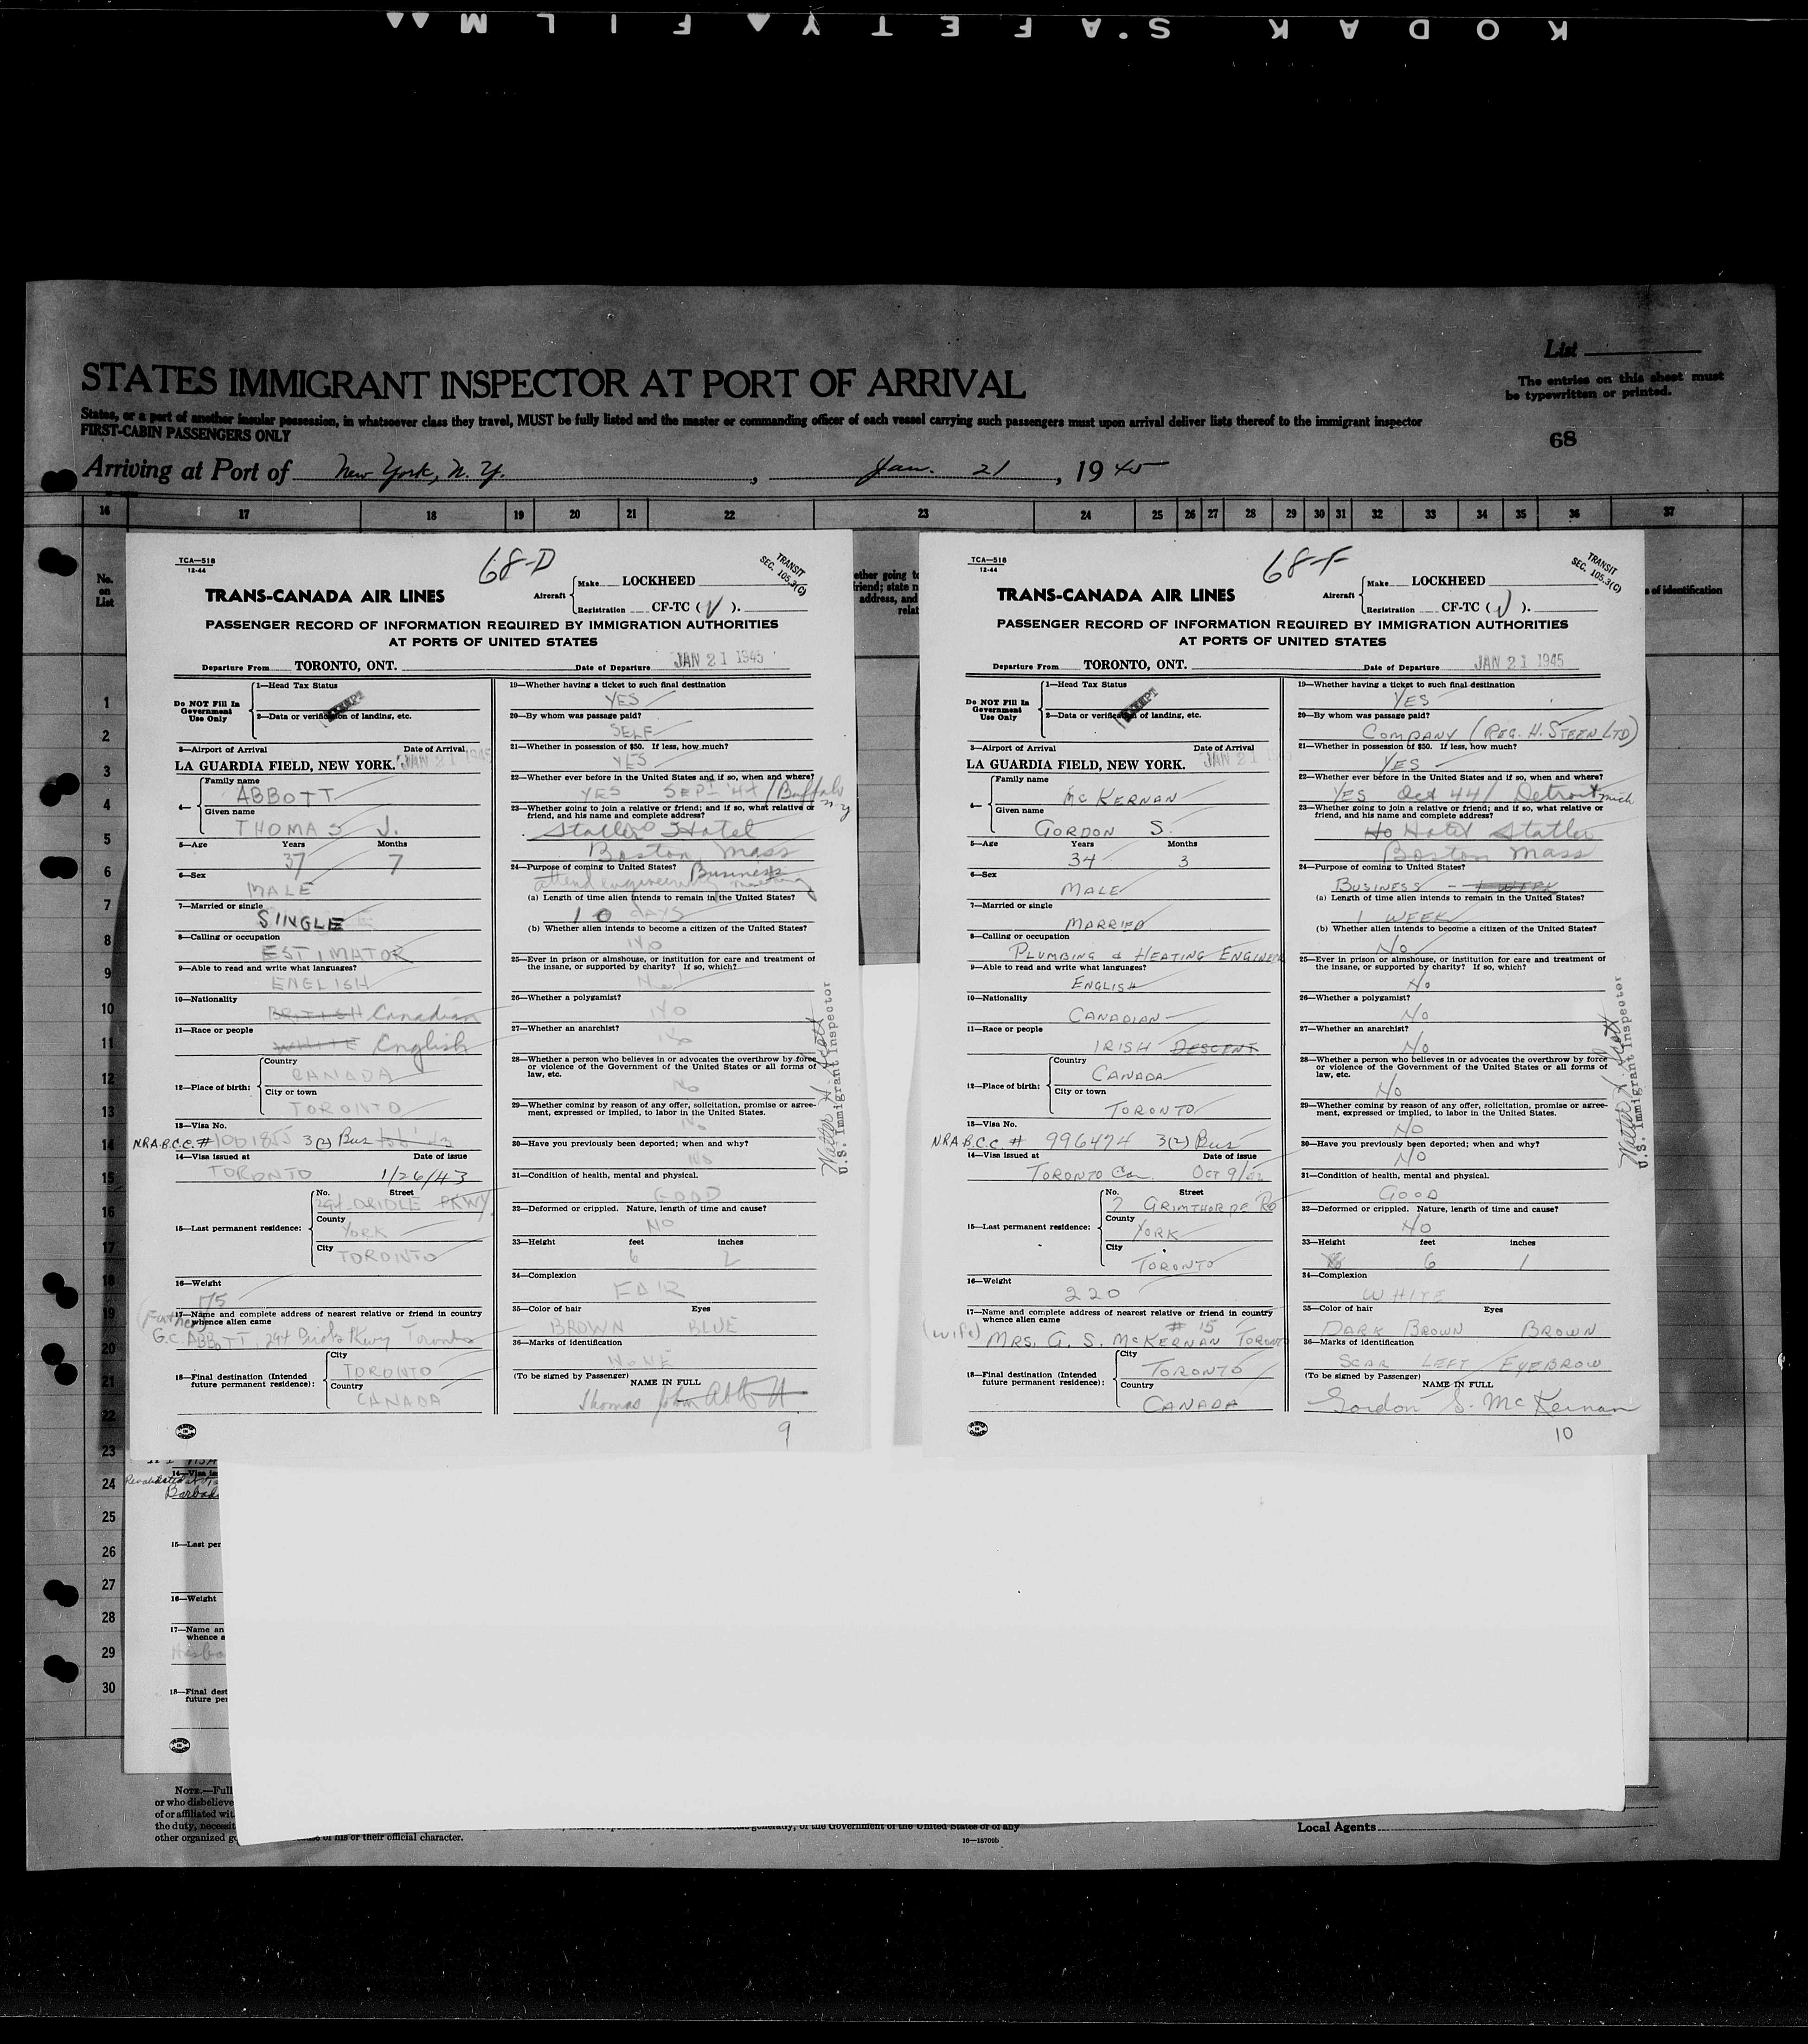 KODAK SAFETY FILM
List
STATES IMMIGRANT INSPECTOR AT PORT OF ARRIVAL
The entries on this sheet must
be typewritten or printed.
States, or a port of another insular possession, in whatsoever class they travel, MUST be fully listed and the master or commanding officer of each vessel carrying such passengers must upon arrival deliver lists thereof to the immigrant inspector
FIRST-CABIN PASSENGERS ONLY
68
Arriving at Port of New York, N. Y., Jan. 21, 1945
16 17 18 19 20 21 22 23 24 25 26 27 28 29 30 31 32 33 34 35 36 37
No.
on
List
ether going to
friend; state n
address, and
relat
s of identification
1
2
3
4
5
6
7
8
9
10
11
12
13
14
15
16
17
18
19
20
21
22
23
24
25
26
27
28
29
30
TCA—518
12-44
68-D
TRANSIT
SEC. 105.3(C)
TRANS-CANADA AIR LINES
Aircraft Make LOCKHEED
Registration CF-TC (V).
PASSENGER RECORD OF INFORMATION REQUIRED BY IMMIGRATION AUTHORITIES
AT PORTS OF UNITED STATES
Departure From TORONTO, ONT. Date of Departure JAN 21 1945
Do NOT Fill In
Government
Use Only
1—Head Tax Status
EXEMPT
2—Data or verification of landing, etc.
3—Airport of Arrival Date of Arrival
LA GUARDIA FIELD, NEW YORK. JAN 21 1945
4—
Family name
ABBOTT
Given name
THOMAS J.
5—Age Years Months
37 7
6—Sex
MALE
7—Married or single
SINGLE
8—Calling or occupation
ESTIMATOR
9—Able to read and write what languages?
ENGLISH
10—Nationality
BRITISH Canadian
11—Race or people
WHITE English
12—Place of birth:
Country
CANADA
City or town
TORONTO
13—Visa No.
N.R.A.B.C.C. # 1061855 3(2) Bus
14—Visa issued at Date of issue
TORONTO 1/26/43
15—Last permanent residence:
No. Street
PKWY
County
YORK
City
TORONTO
16—Weight
175
17—Name and complete address of nearest relative or friend in country
whence alien came
(Father)
G.C. ABBOTT, Pkwy Toronto
18—Final destination (Intended
future permanent residence):
City
TORONTO
Country
CANADA
19—Whether having a ticket to such final destination
YES
20—By whom was passage paid?
SELF
21—Whether in possession of $50. If less, how much?
YES
22—Whether ever before in the United States and if so, when and where?
YES SEPT 44 / Buffalo N.Y
23—Whether going to join a relative or friend; and if so, what relative or
friend, and his name and complete address?
Statler Hotel
Boston Mass
24—Purpose of coming to United States? Business
attend engineering meeting
(a) Length of time alien intends to remain in the United States?
10 DAYS
(b) Whether alien intends to become a citizen of the United States?
NO
25—Ever in prison or almshouse, or institution for care and treatment of
the insane, or supported by charity? If so, which?
No
26—Whether a polygamist?
NO
27—Whether an anarchist?
No
28—Whether a person who believes in or advocates the overthrow by force
or violence of the Government of the United States or all forms of
law, etc.
No
29—Whether coming by reason of any offer, solicitation, promise or agree-
ment, expressed or implied, to labor in the United States.
No
30—Have you previously been deported; when and why?
NO
31—Condition of health, mental and physical.
GOOD
32—Deformed or crippled. Nature, length of time and cause?
NO
33—Height feet inches
6 2
34—Complexion
FAIR
35—Color of hair Eyes
BROWN BLUE
36—Marks of identification
NONE
(To be signed by Passenger) NAME IN FULL
Thomas John Abbott
9
Walter H. Scott
U.S. Immigrant Inspector
TCA—518
12-44
68-F
TRANSIT
SEC. 105.3(C)
TRANS-CANADA AIR LINES
Aircraft Make LOCKHEED
Registration CF-TC (V).
PASSENGER RECORD OF INFORMATION REQUIRED BY IMMIGRATION AUTHORITIES
AT PORTS OF UNITED STATES
Departure From TORONTO, ONT. Date of Departure JAN 21 1945
Do NOT Fill In
Government
Use Only
1—Head Tax Status
EXEMPT
2—Data or verification of landing, etc.
3—Airport of Arrival Date of Arrival
LA GUARDIA FIELD, NEW YORK. JAN 21 1945
4—
Family name
McKERNAN
Given name
GORDON S.
5—Age Years Months
34 3
6—Sex
MALE
7—Married or single
MARRIED
8—Calling or occupation
PLUMBING & HEATING ENGINEER
9—Able to read and write what languages?
ENGLISH
10—Nationality
CANADIAN
11—Race or people
IRISH DESCENT
12—Place of birth:
Country
CANADA
City or town
TORONTO
13—Visa No.
N.R.A.B.C.C. # 996474 3(2) Bus
14—Visa issued at Date of issue
TORONTO Can. Oct 9/42
15—Last permanent residence:
No. Street
7 GRIMTHORPE RD
County
YORK
City
TORONTO
16—Weight
220
17—Name and complete address of nearest relative or friend in country
whence alien came
(wife) # 15
MRS. G. S. McKERNAN TORONTO
18—Final destination (Intended
future permanent residence):
City
TORONTO
Country
CANADA
19—Whether having a ticket to such final destination
YES
20—By whom was passage paid?
COMPANY (REG. H. STEEN LTD)
21—Whether in possession of $50. If less, how much?
YES
22—Whether ever before in the United States and if so, when and where?
YES Oct 44 / Detroit Mich
23—Whether going to join a relative or friend; and if so, what relative or
friend, and his name and complete address?
No Hotel Statler
Boston Mass
24—Purpose of coming to United States?
BUSINESS - 1 WEEK
(a) Length of time alien intends to remain in the United States?
1 WEEK
(b) Whether alien intends to become a citizen of the United States?
No
25—Ever in prison or almshouse, or institution for care and treatment of
the insane, or supported by charity? If so, which?
No
26—Whether a polygamist?
No
27—Whether an anarchist?
No
28—Whether a person who believes in or advocates the overthrow by force
or violence of the Government of the United States or all forms of
law, etc.
No
29—Whether coming by reason of any offer, solicitation, promise or agree-
ment, expressed or implied, to labor in the United States.
No
30—Have you previously been deported; when and why?
No
31—Condition of health, mental and physical.
GOOD
32—Deformed or crippled. Nature, length of time and cause?
No
33—Height feet inches
6 1
34—Complexion
WHITE
35—Color of hair Eyes
DARK BROWN BROWN
36—Marks of identification
SCAR LEFT EYEBROW
(To be signed by Passenger) NAME IN FULL
Gordon S. McKernan
10
Walter H. Scott
U.S. Immigrant Inspector
14—Visa is
Barbad
15—Last per
16—Weight
17—Name an
whence a
Husba
18—Final dest
future per
NOTE.—Full
or who disbelieve
of or affiliated wit
the duty, necessit
other organized go
generally, of the Government of the United States or of any
of his or their official character.
16—18709b
Local Agents